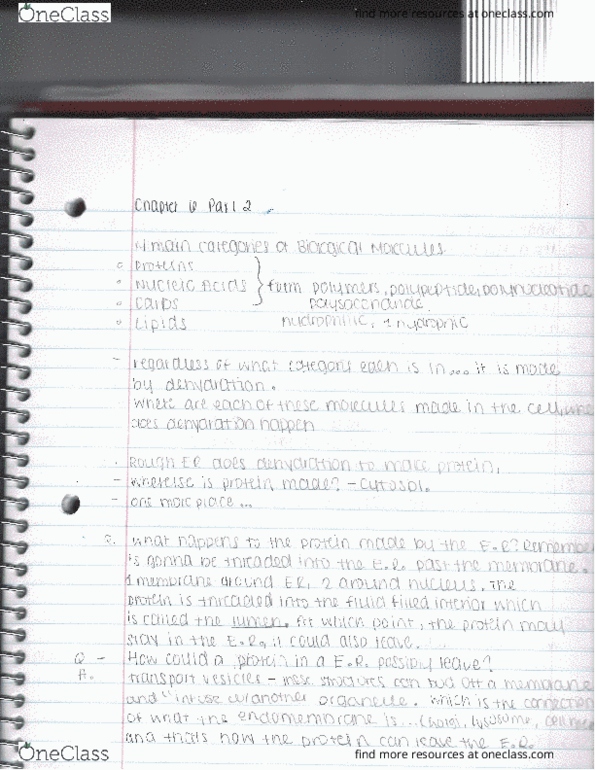 OneClass
find more resources at oneclass.com
Chapter 6 Part 2
4 main categories of Biological Molecules
Proteins
Nucleic Acids } form polymers, polypeptide, polynucleotide
Carbs polysaccharide.
Lipids
- regardless of what category each is in... it is made
by dehydration.
Where are each of these molecules made in the cell, where
does dehydration happen
Rough ER does dehydration to make protein.
- where else is protein made? - cytosol.
- one more place...
Q. what happens to the protein made by the E.R? Remember
is gonna be threaded into the E.R. past the membrane.
1 membrane around ER, 2 around nucleus. The
protein is threaded into the fluid filled interior which
is called the lumen. At which point, the protein may
stay in the E.R, it could also leave.
Q - How could a protein in a E.R. possibly leave?
A. transport vesicles - these structures can bud off a membrane
and another organelle. Which is the connection
of what the endomembrane is... (Golgi, lysosome,
and thats how the protein can leave the E.R.
OneClass
find more resources at oneclass.com